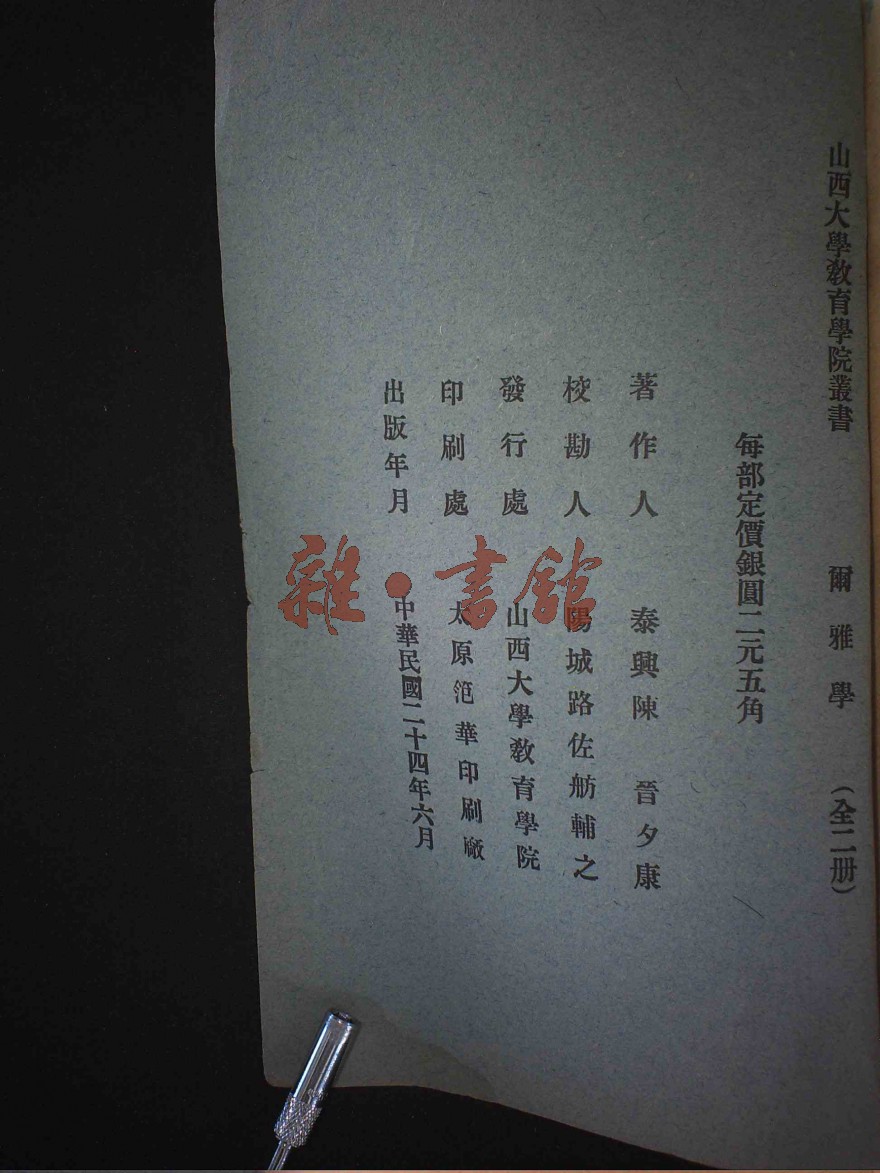 山西大學教育學院叢書 爾雅學 (全二册)
每部定價銀圓二元五角
著作人 泰興陳 晉夕康
校勘人 陽城路佐舫輔之
發行處 山西大學教育學院
印刷處 太原范華印刷廠
出版年月 中華民國二十四年六月
雜·書館